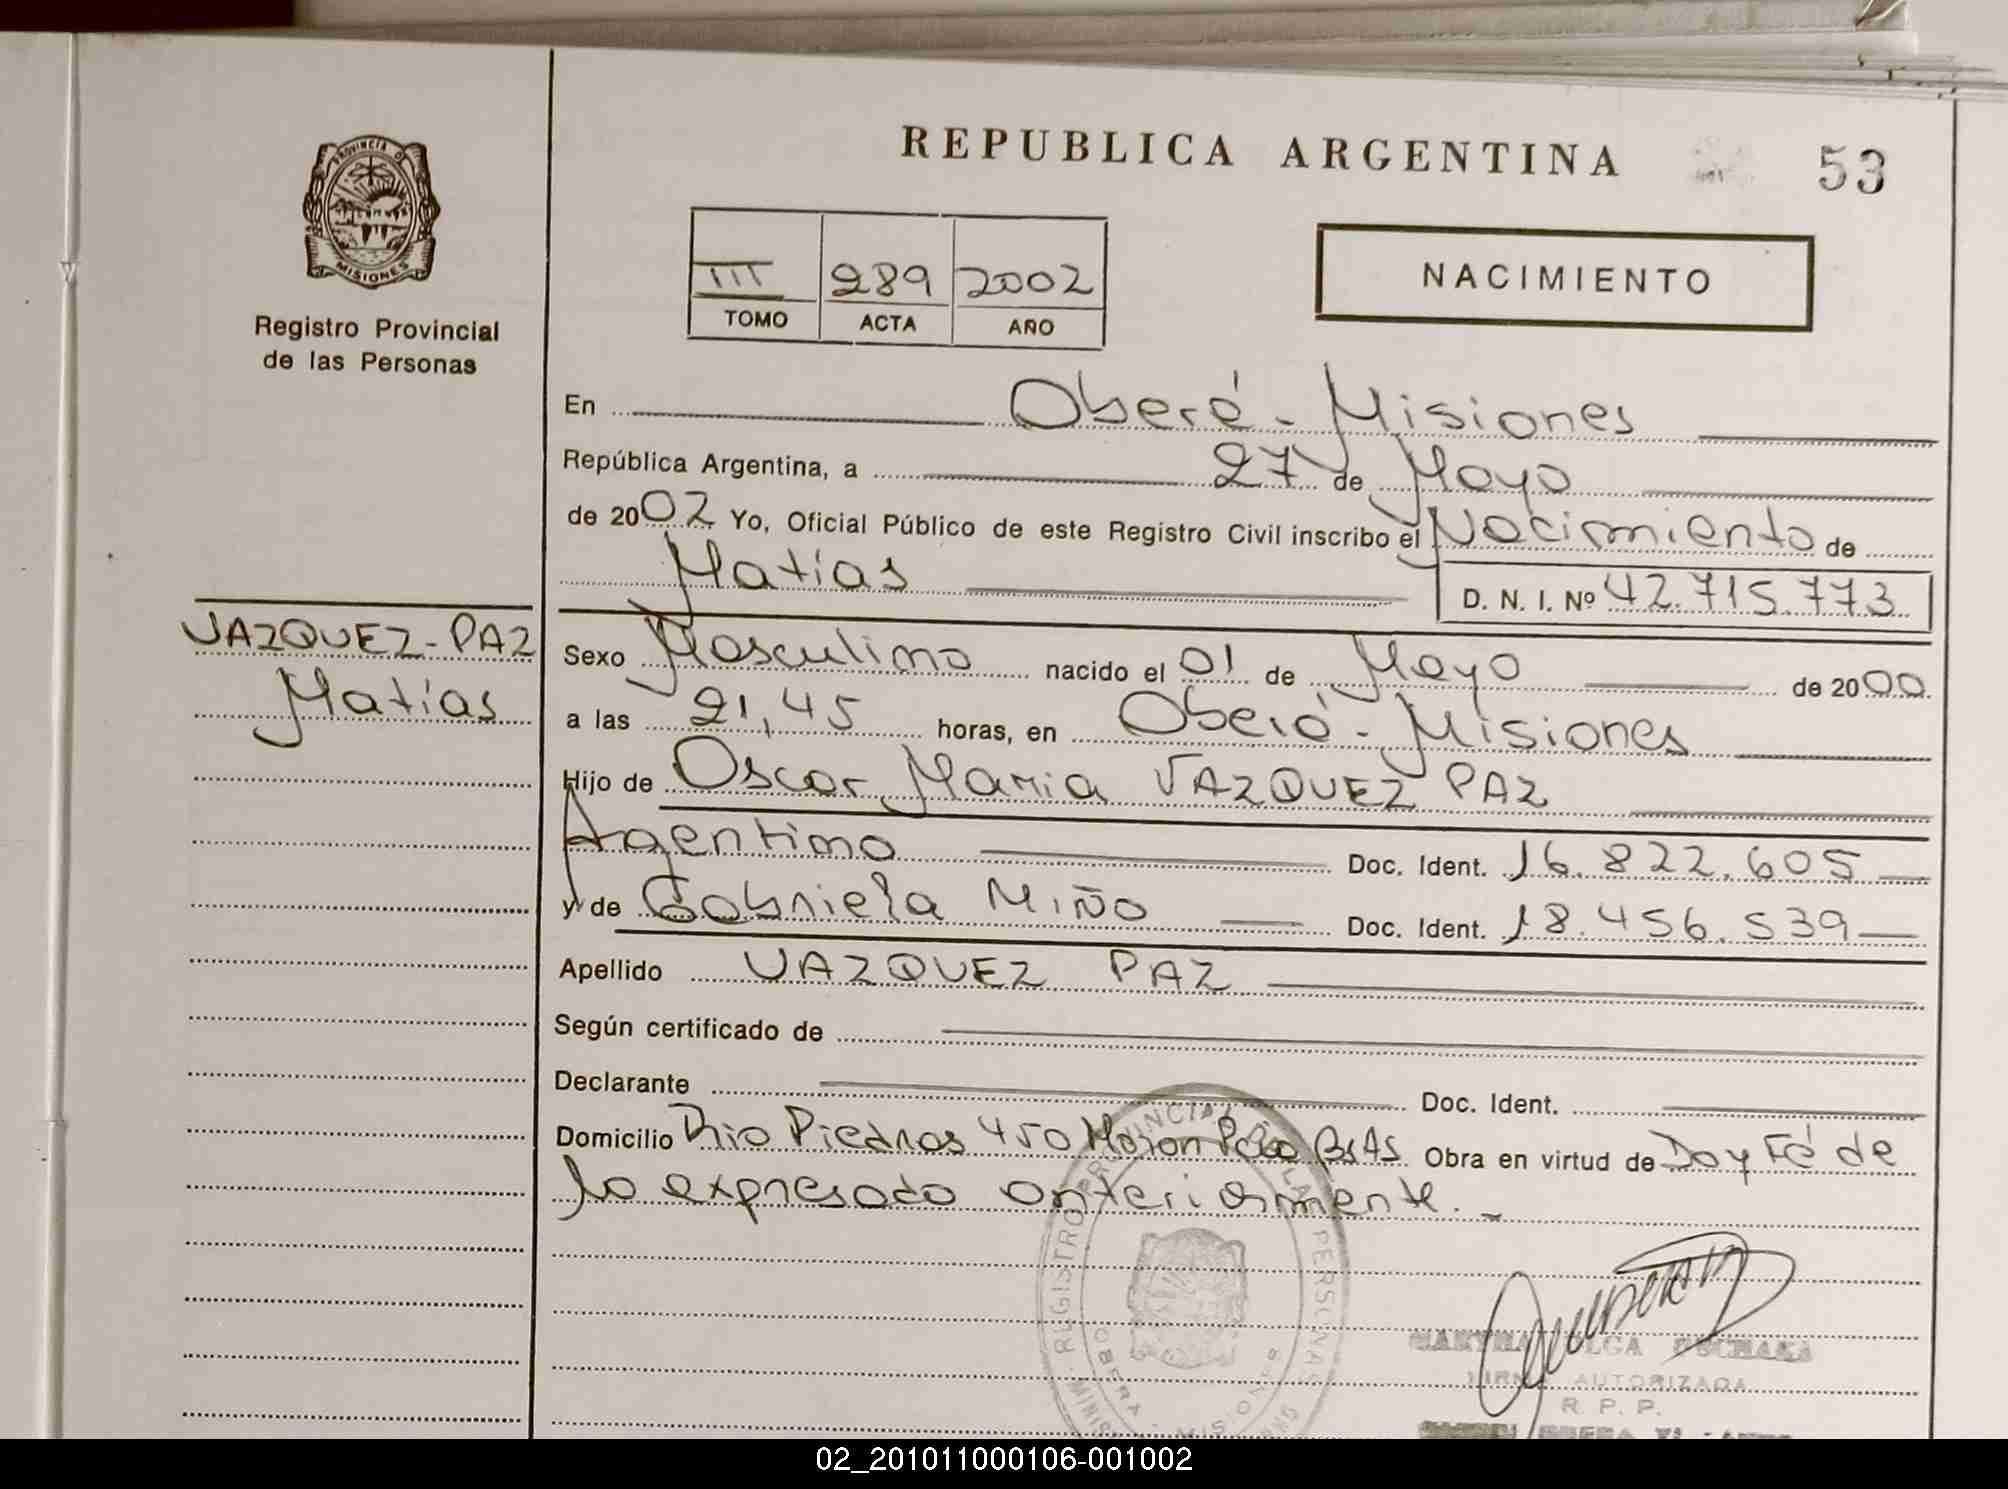 REPUBLICA ARGENTINA
53
PROVINCIA DE
MISIONES
Registro Provincial
de las Personas
III 289 2002
TOMO ACTA AÑO
NACIMIENTO
En Oberá - Misiones
República Argentina, a 27 de Mayo
de 2002 Yo, Oficial Público de este Registro Civil inscribo el Nacimiento de
Matías
D. N. I. Nº 42.715.773
VAZQUEZ-PAZ
Matías
Sexo Masculino nacido el 01 de Mayo de 2000
a las 21,45 horas, en Oberá - Misiones
Hijo de Oscar Maria VAZQUEZ PAZ
Argentino Doc. Ident. 16.822.605
y de Gabriela MIÑO Doc. Ident. 18.456.539
Apellido VAZQUEZ PAZ
Según certificado de
Declarante Doc. Ident.
Domicilio Rio Piedras 450 Moron Pcia BsAs Obra en virtud de Doy Fé de
lo expresado anteriormente.-
REGISTRO PROVINCIAL DE LAS PERSONAS
OBERA - MISIONES
MARTHA OLGA
FIRMA AUTORIZADA
R. P. P.
02_201011000106-001002